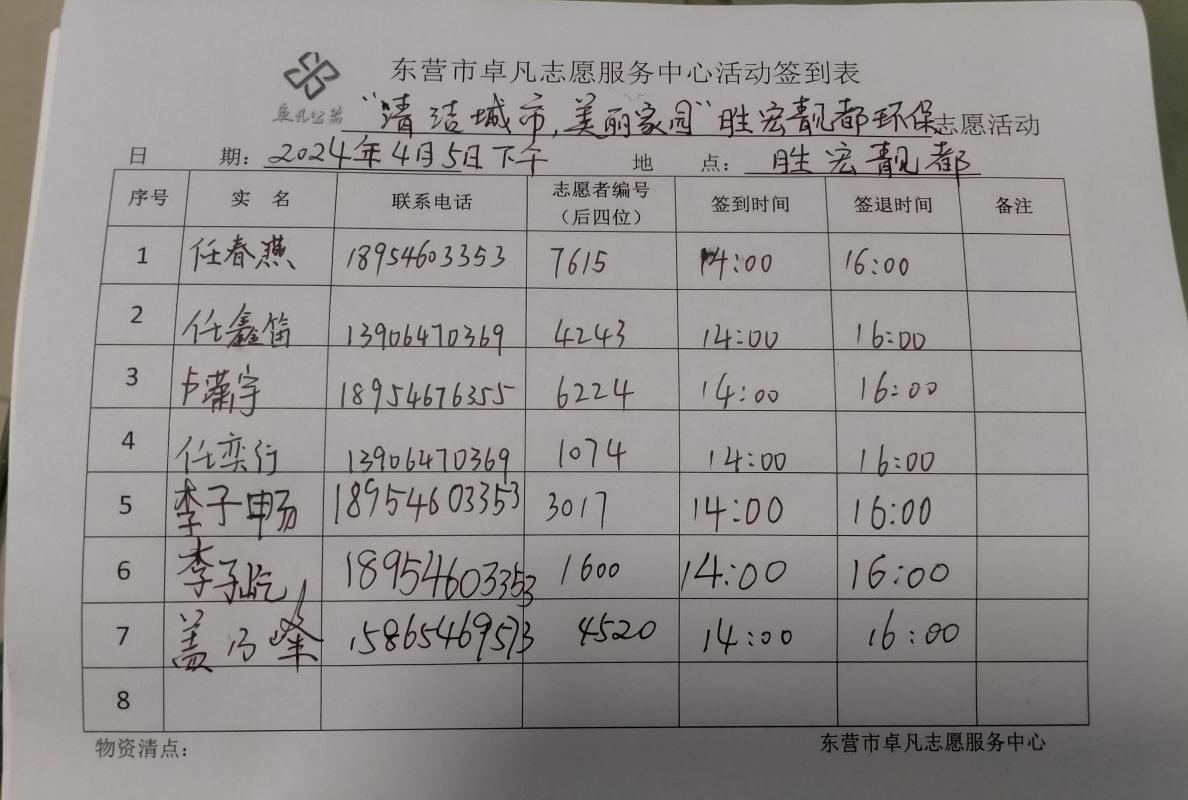 东营市卓凡志愿服务中心活动签到表
卓凡公益 “清洁城市,美丽家园”胜宏靓都环保志愿活动
日 期: 2024年4月5日下午 地 点: 胜宏靓都
序号 实 名 联系电话 志愿者编号(后四位) 签到时间 签退时间 备注
1 任春燕 18954603353 7615 14:00 16:00
2 任鑫笛 13906470369 4243 14:00 16:00
3 卢潇宇 18954676355 6224 14:00 16:00
4 任奕行 13906470369 1074 14:00 16:00
5 李子畅 18954603353 3017 14:00 16:00
6 李子屹 18954603353 1600 14:00 16:00
7 盖 峰 15865469573 4520 14:00 16:00
8
物资清点: 东营市卓凡志愿服务中心